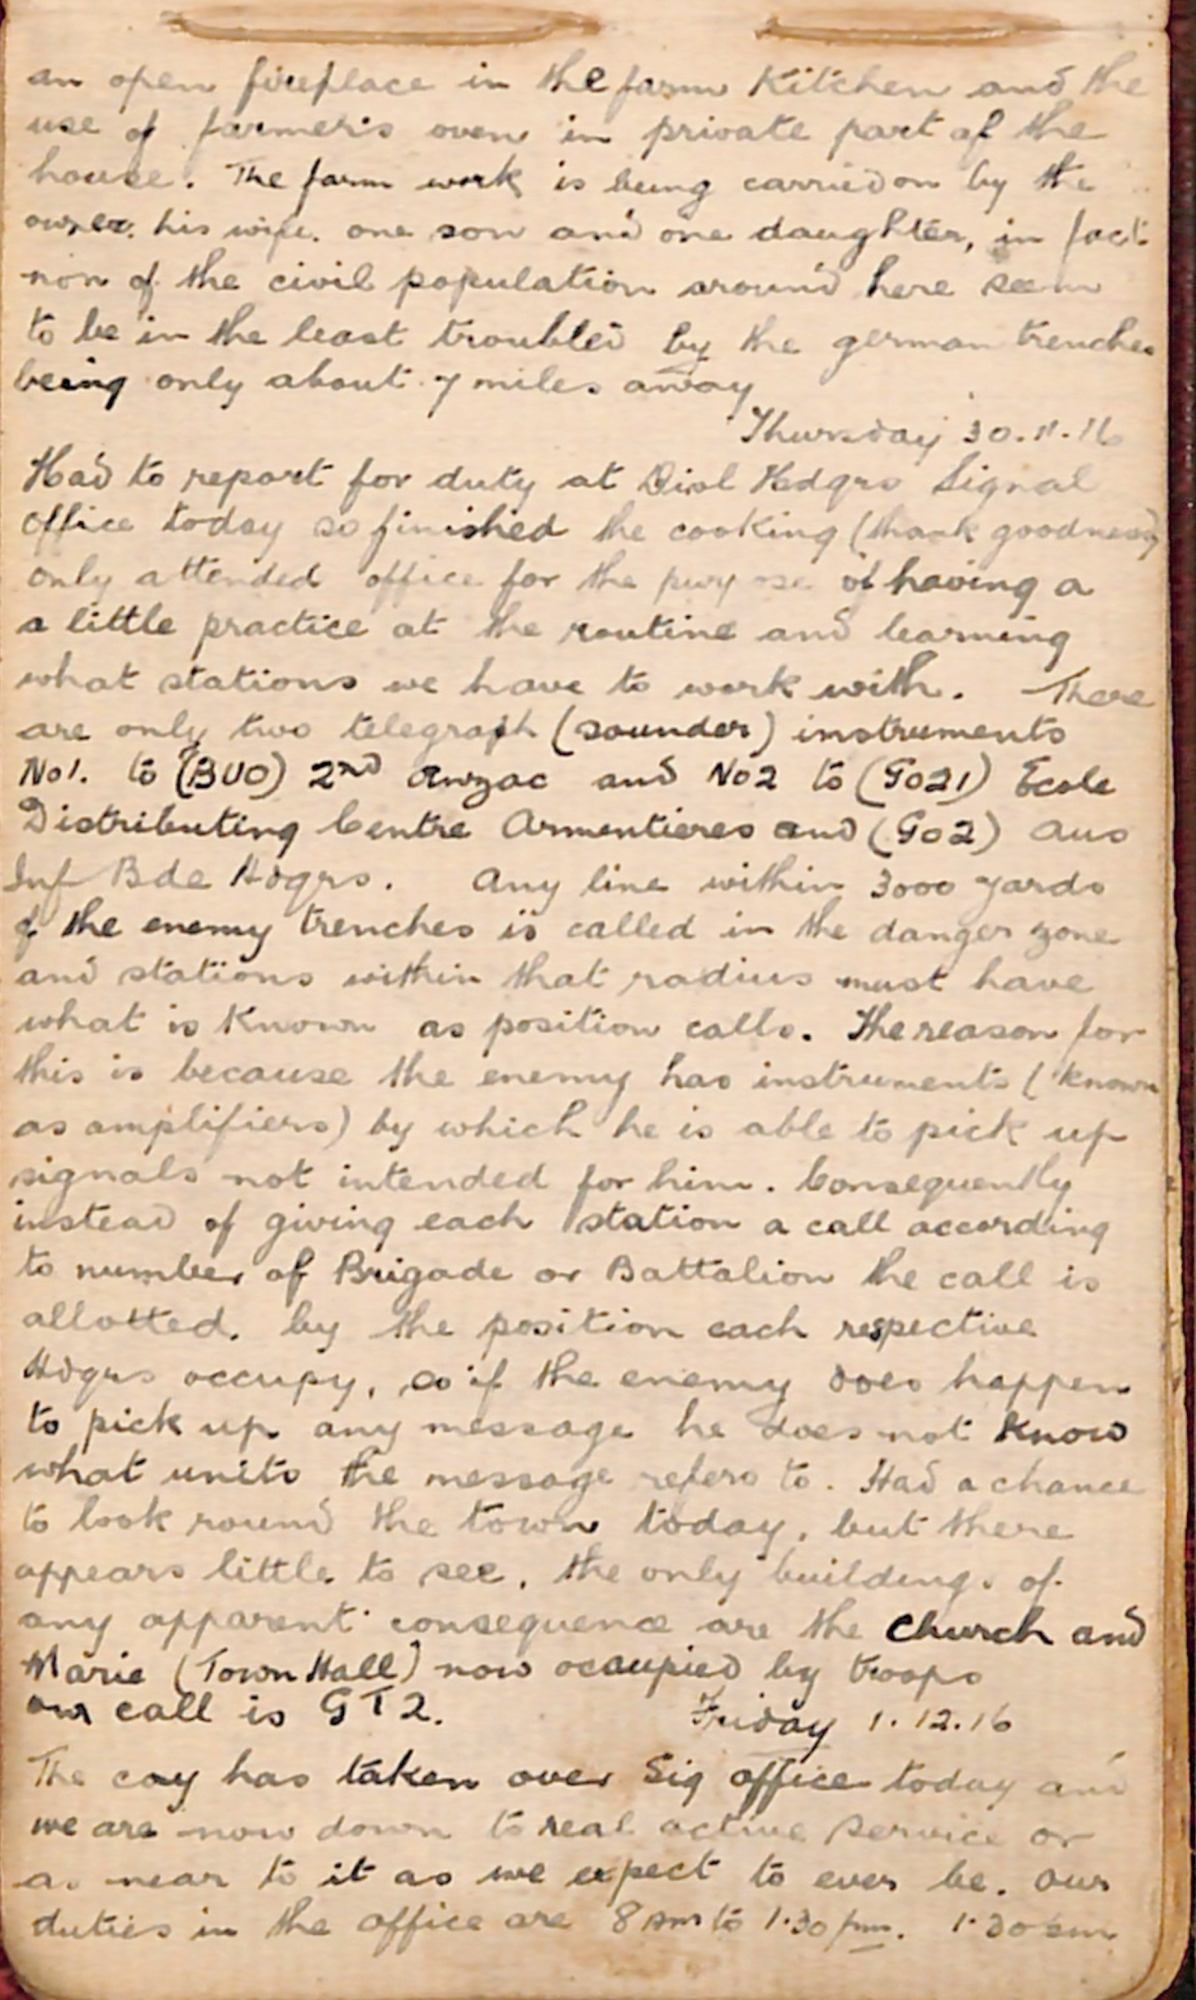 an open fireplace in the farm Kitchen and the
use of farmer's oven in private part of the
house. The farm work is being carried on by the
owner. his wife. one son and one daughter, in fact
non of the civil population around here seem
to be in the least troubled by the german trenches
being only about 7 miles away
Thursday 30.11.16
Had to report for duty at Divl Hedqrs Signal
Office today so finished the cooking (thank goodness)
only attended office for the purpose of having a
a little practice at the routine and learning
what stations we have to work with. There
are only two telegraph (sounder) instruments
No1. to (BUO) 2nd Anzac and No2 to (GO21) Ecole
Distributing Centre Armentieres and (GO2) Aus
Inf Bde Hdqrs. Any line within 3000 yards
of the enemy trenches is called in the danger zone
and stations within that radius must have
what is known as position calls. The reason for
this is because the enemy has instruments (known
as amplifiers) by which he is able to pick up
signals not intended for him. Consequently
instead of giving each station a call according
to number of Brigade or Battalion the call is
allotted. by the position each respective
Hdqrs occupy, so if the enemy does happen
to pick up any message he does not know
what units the message refers to. Had a chance
to look round the town today, but there
appears little to see, the only buildings of
any apparent consequence are the Church and
Marie (Town Hall) now occupied by troops
our call is GT2.
Friday 1.12.16
The coy has taken over Sig office today and
we are now down to real active service or
as near to it as we expect to ever be. Our
duties in the office are 8 am to 1.30 pm. 1.30